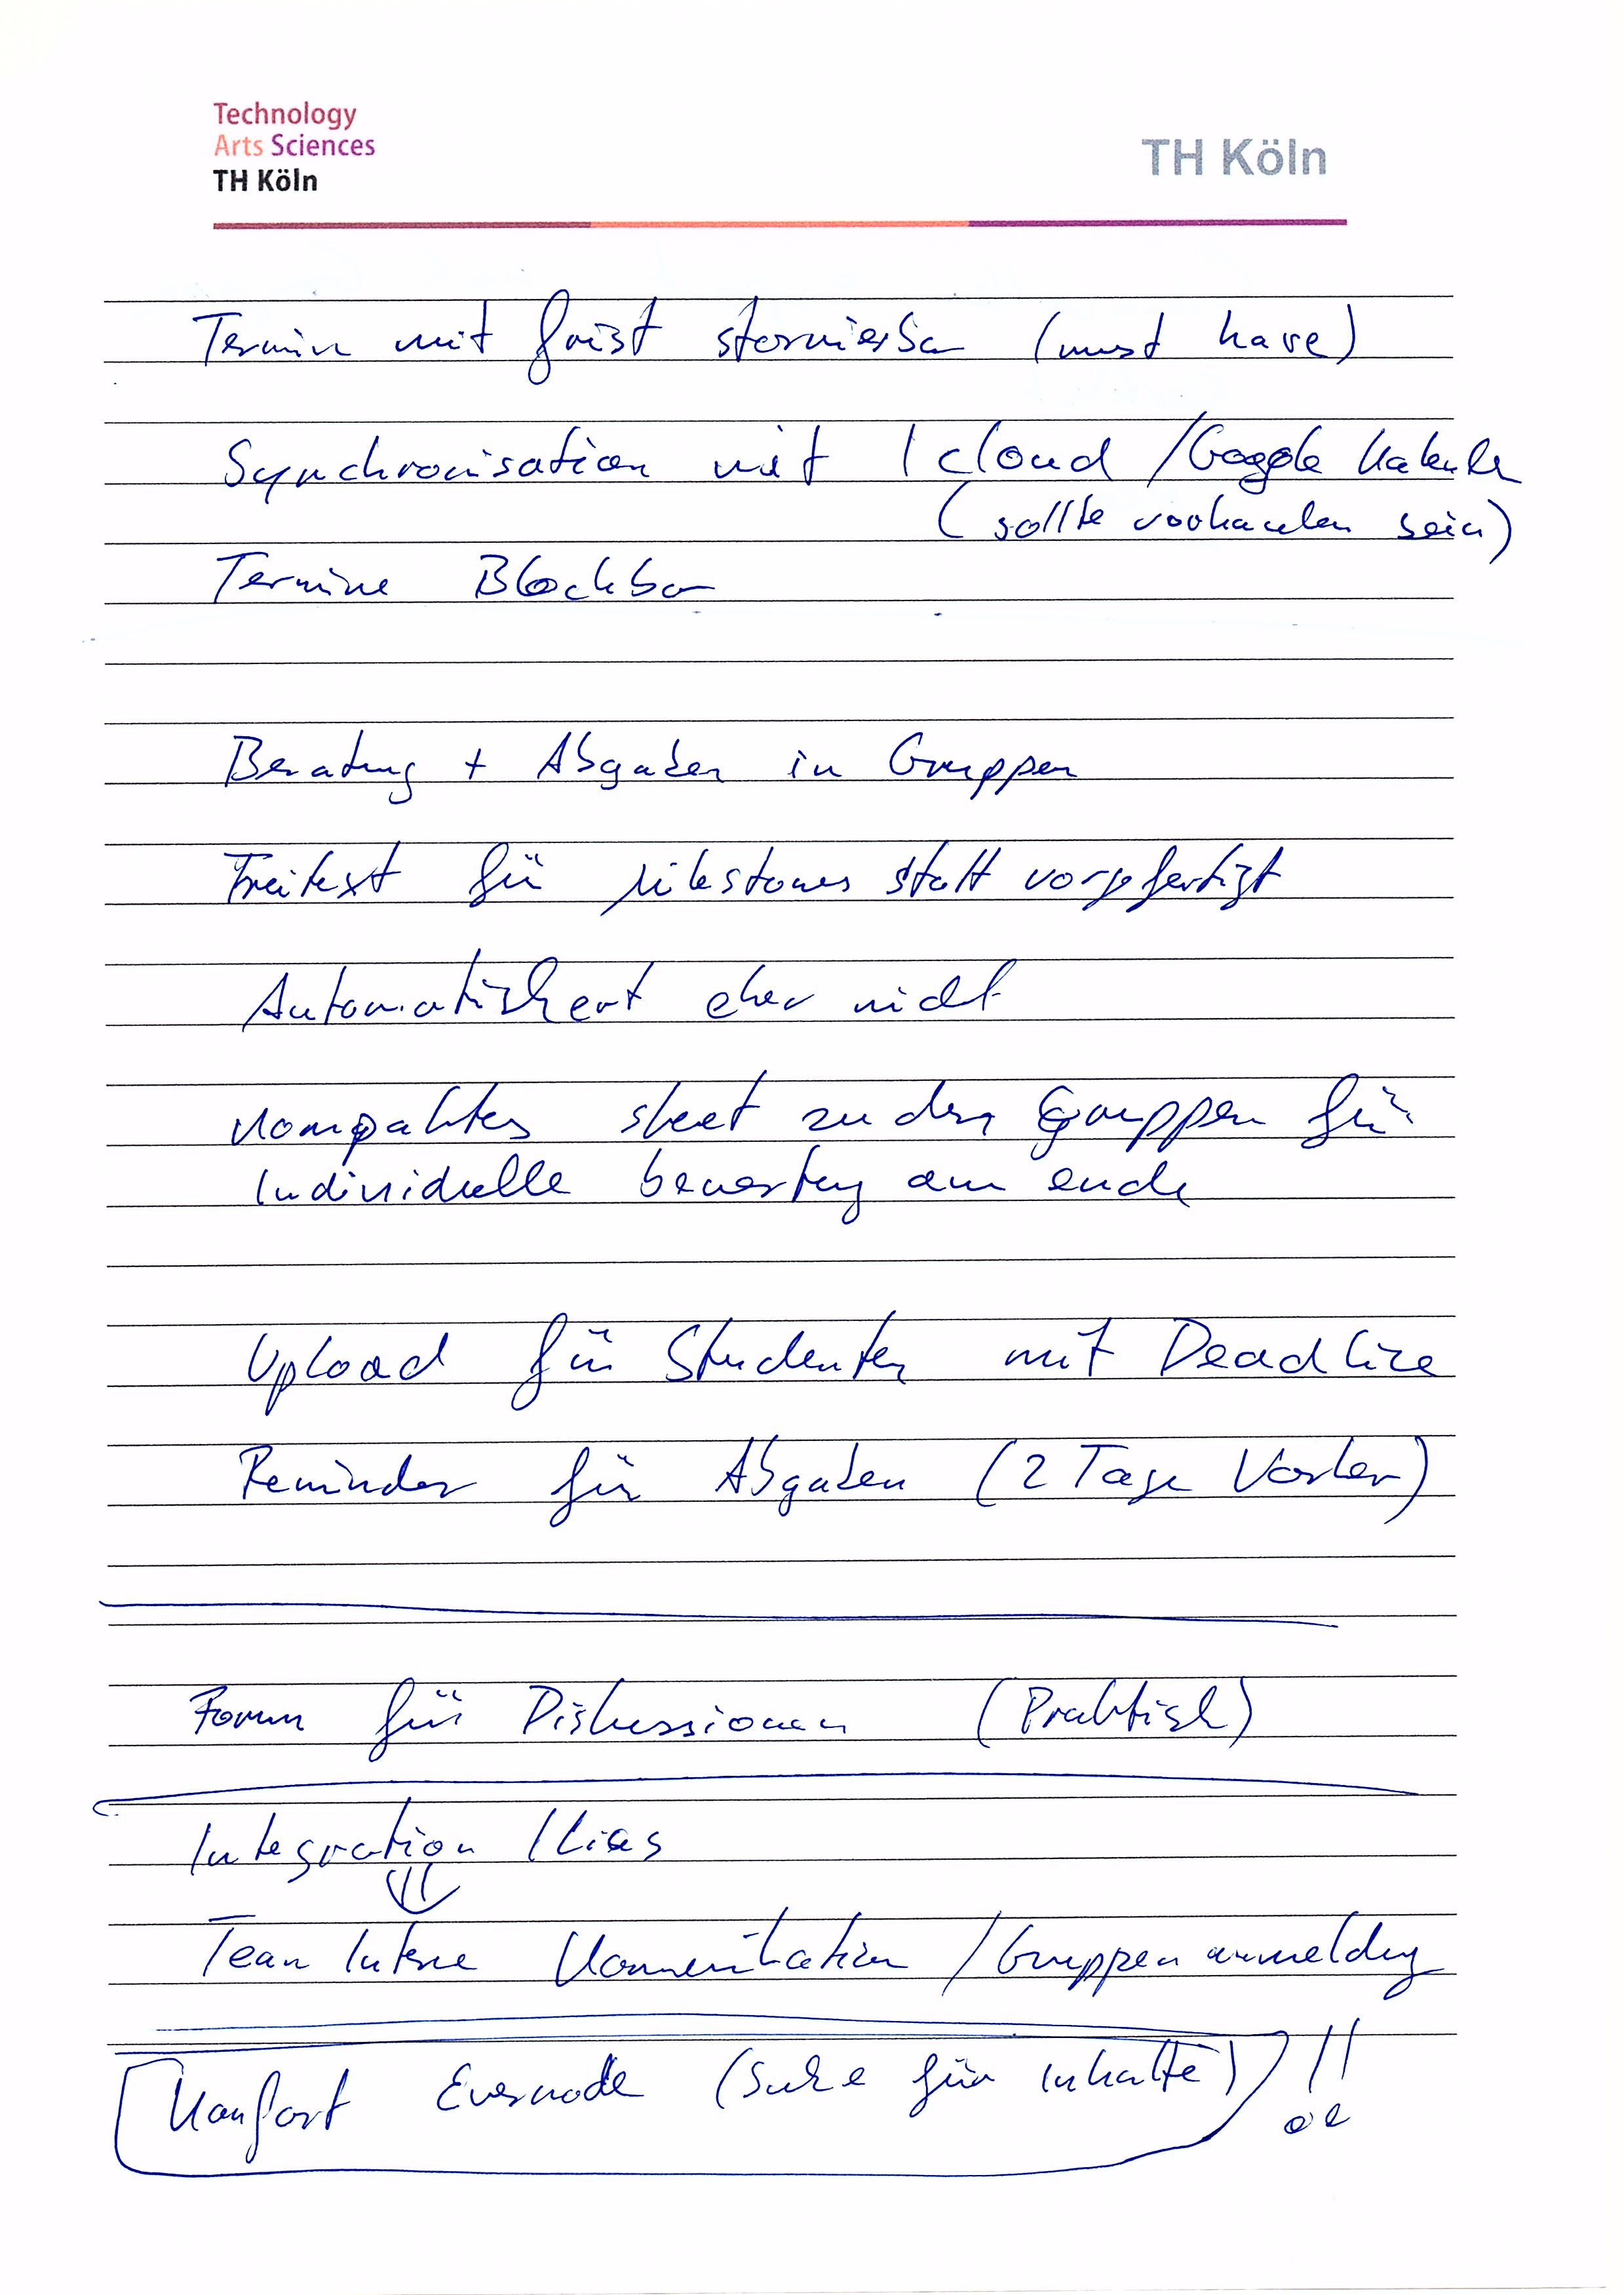 Technology
Arts Sciences
TH Köln
TH Köln
Termin mit Frist stornierbar (must have)
Synchronisation mit Icloud / Google Kalender
(sollte vorhanden sein)
Termine Blockbar
Beratung + Abgaben in Gruppen
Freitext für Milestones statt vorgefertigt
Automatisiert eher nicht
Kompaktes sheet zu den Gruppen für
Individuelle bewertung am ende
Upload für Studenten mit Deadline
Reminder für Abgaben (2 Tage Vorher)
Forum für Diskussionen (Praktisch)
Integration Ilias
Team Interne Kommunikation / Gruppenanmeldung
Komfort Evernode (Suche für Inhalte) !!